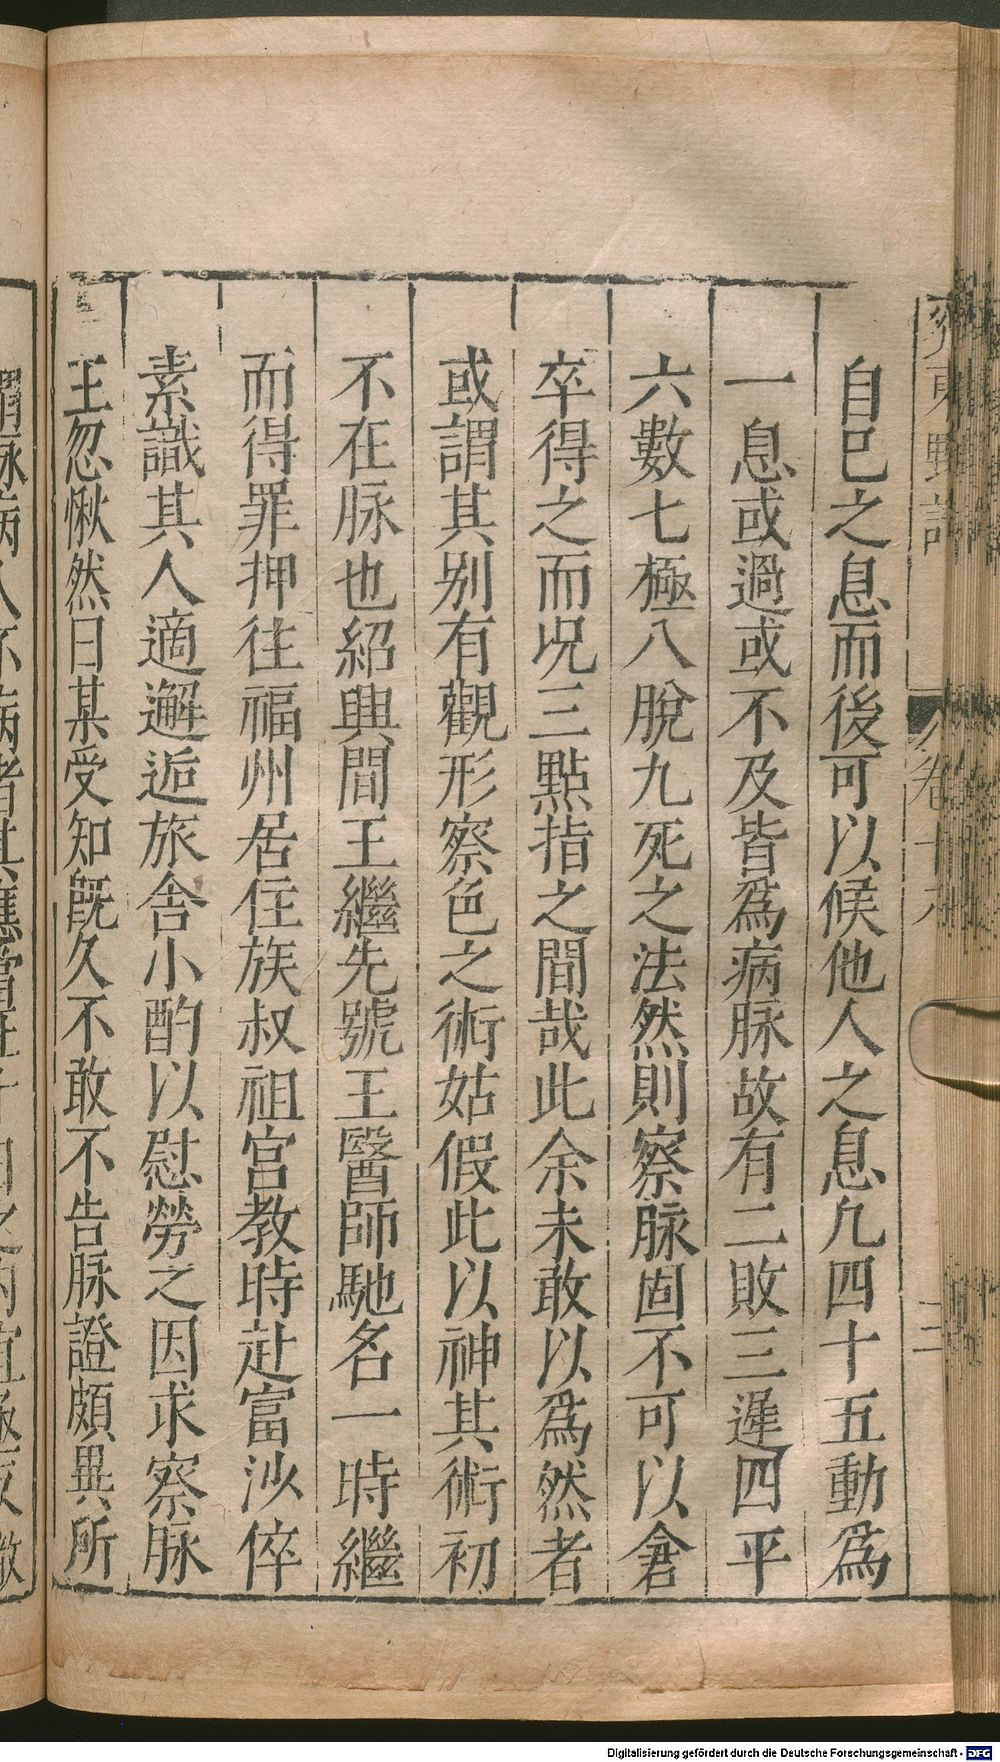 自巳之息而後可以候他人之息凢四十五動爲
一息或過或不及皆爲病脉故有二敗三遲四平
六數七極八脫九死之法然則察脉固不可以倉
卒得之而况三點指之間哉此余未敢以爲然者
或謂其别有觀形察色之術姑假此以神其術初
不在脉也紹興間王繼先號王醫師馳名一時繼
而得罪押往福州居住族叔祖宫教時赴富沙倅
素識其人適邂逅旅舍小酌以慰勞之因求察脉
王忽愀然曰某受知旣久不敢不告脉證頗異所
齊東野語
卷十六
二
Digitalisierung gefördert durch die Deutsche Forschungsgemeinschaft - DFG